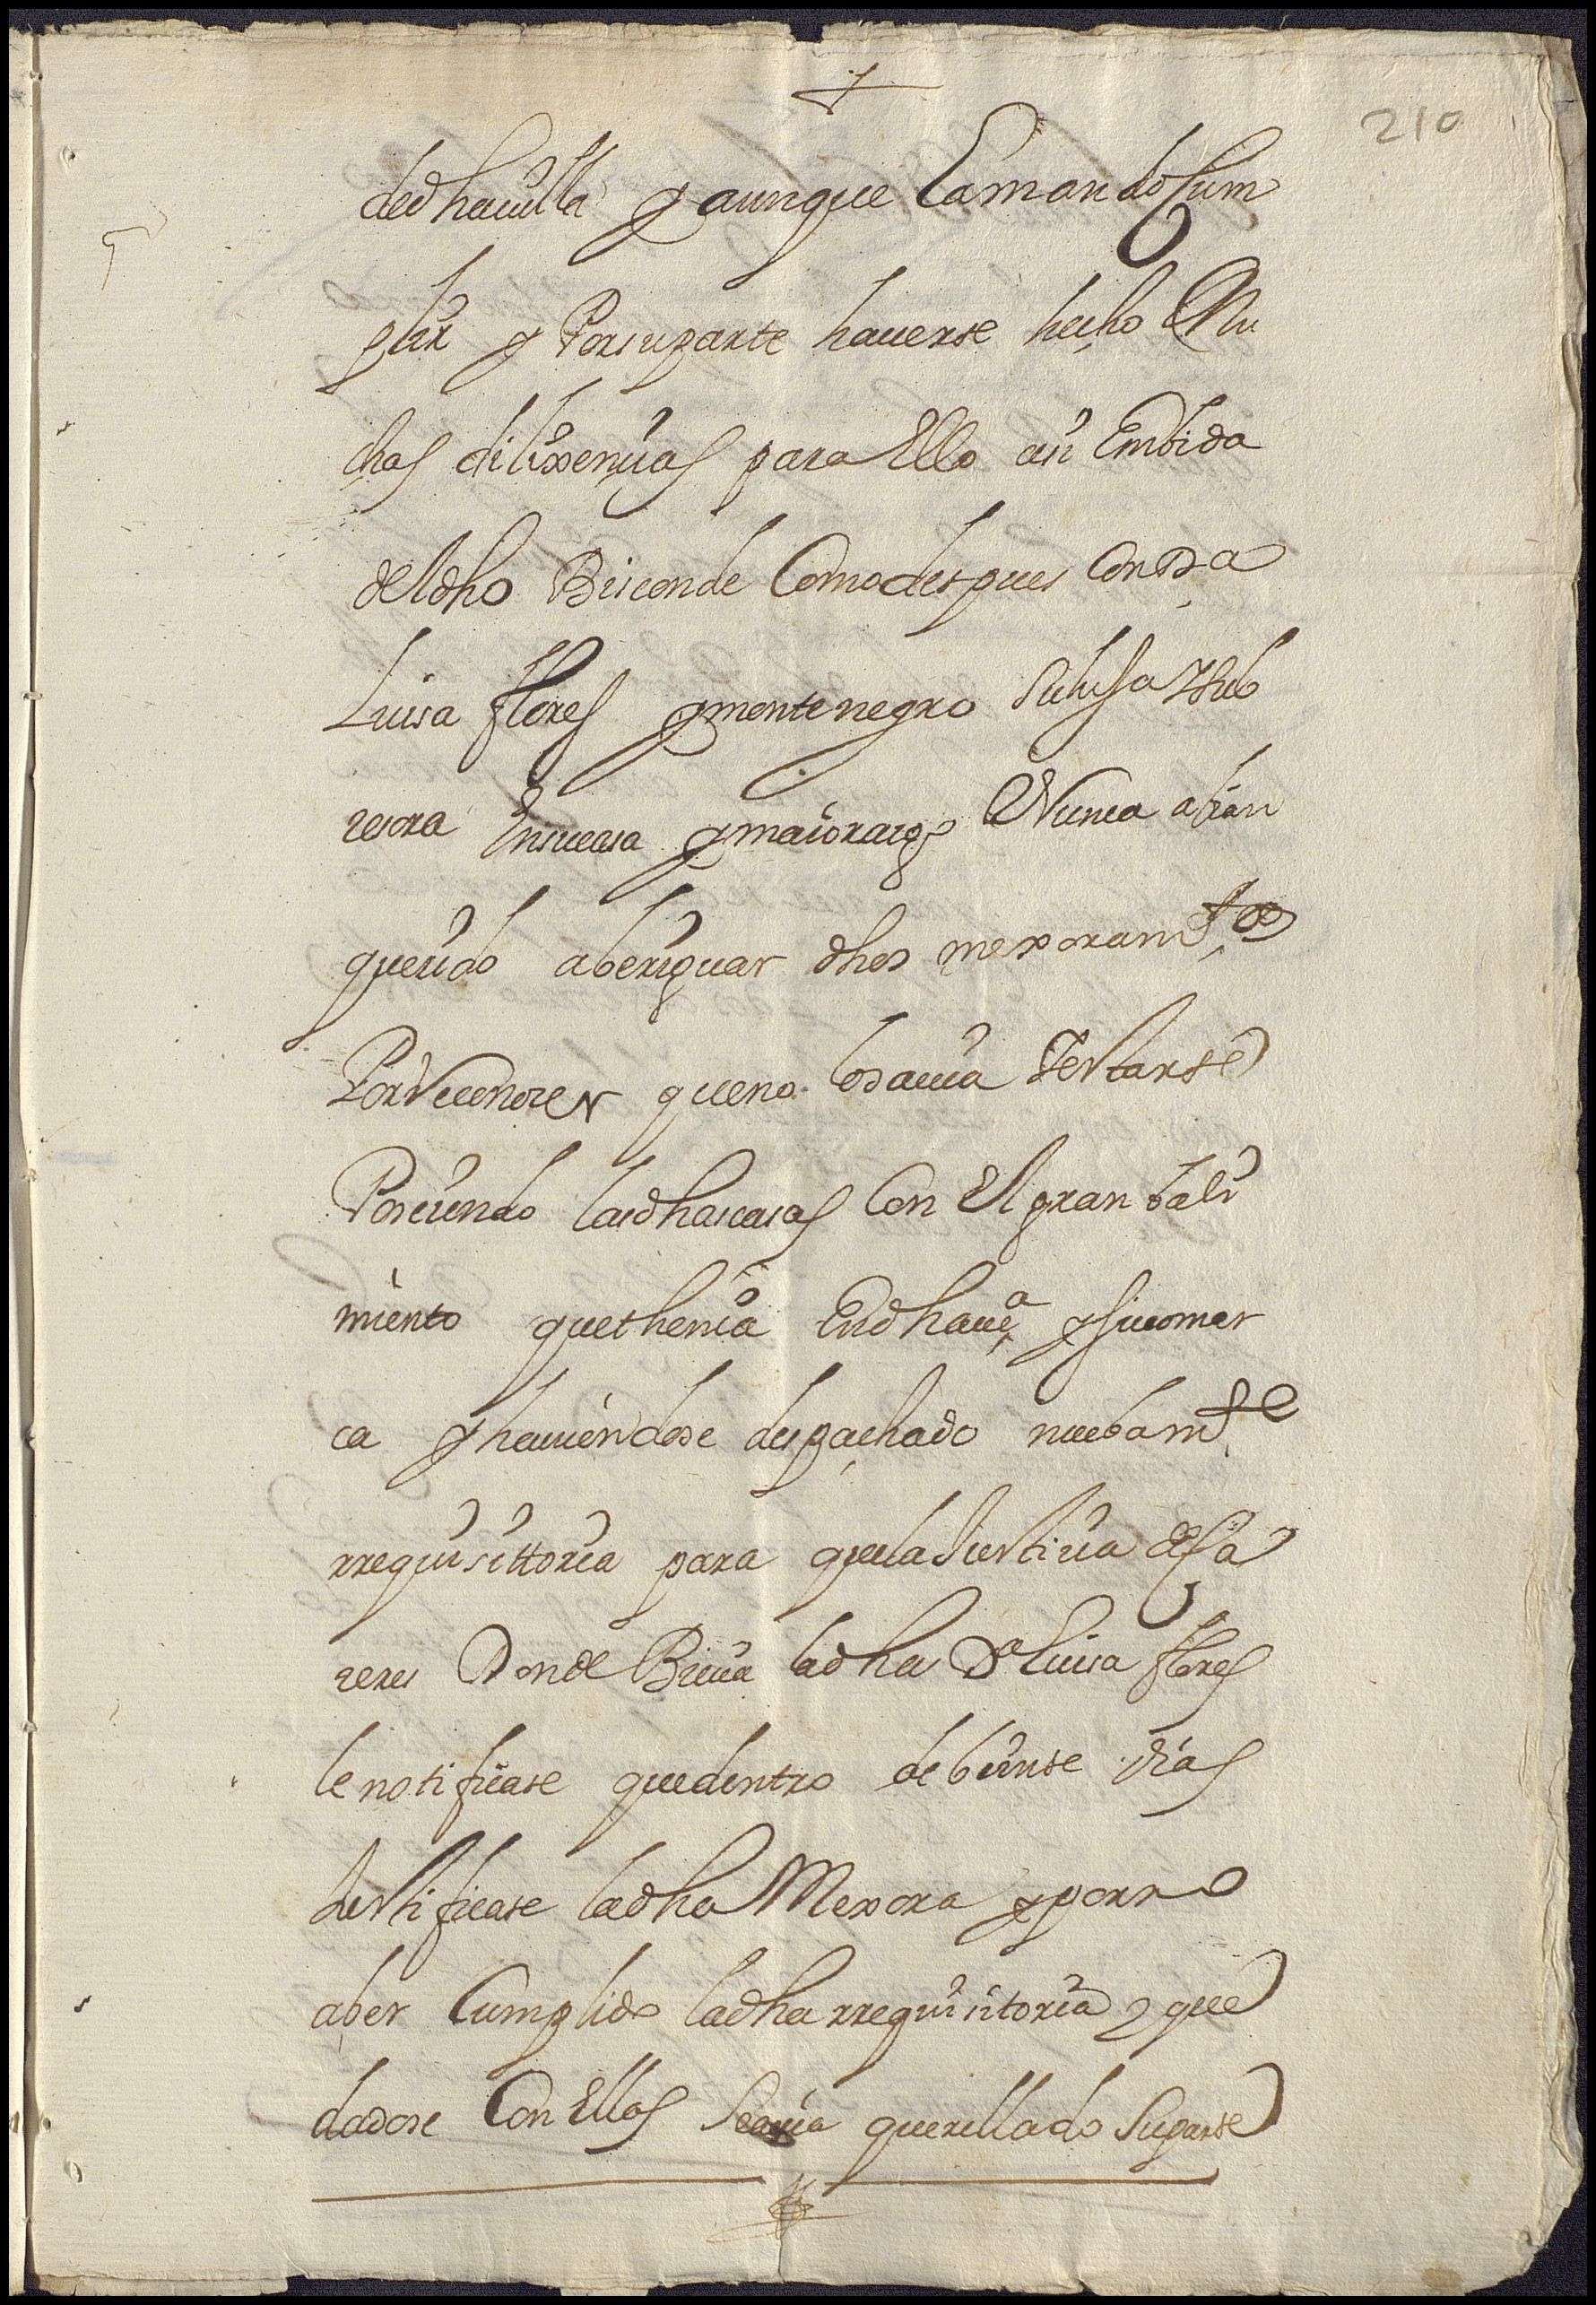 210
de dha uilla y aunque la mando cum
plir y Por su parte hauerse hecho Mu
chas dilixencias para Ello asi En bida
del dho Bisconde Como despues Con Da
Luisa flores y montenegro su hija y sub
cesora En su casa y maiorazgo Nunca abian
querido aberiguar dhos mexoramtos
Por Reconocer que no los auia Y estarse
Poseiendo las dhas casas Con El gran bali
miento que thenia En dha uia y su comar
ca y hauiendose despachado nuebamte
rrequisittoria para que la Justicia de Ca
zeres Donde Biuia la dha Da Luisa flores
le notificase que dentro de beinte dias
Justificase la dha Mexora y por no
aber Cumplido la dha rrequisitoria y que
dadose Con Ellas Se auia querellado Su parte